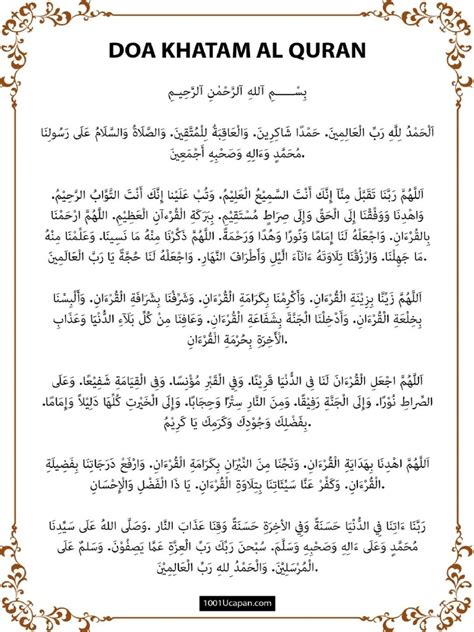 DOA KHATAM AL QURAN
بِسْــــــمِ ٱللهِ ٱلرَّحْمٰنِ ٱلرَّحِيـمِ
اَلْحَمْدُ لِلَّهِ رَبِّ الْعَالَمِينَ. حَمْدًا شَاكِرِينَ. وَالْعَاقِبَةُ لِلْمُتَّقِينَ. وَالصَّلَاةُ وَالسَّلَامُ عَلَى رَسُولِنَا
مُحَمَّدٍ وَءَالِهِ وَصَحْبِهِ أَجْمَعِينَ
اَللَّهُمَّ رَبَّنَا تَقَبَّلْ مِنَّآ إِنَّكَ أَنْتَ السَّمِيْعُ الْعَلِيْمُ. وَتُبْ عَلَيْنا إِنَّكَ أَنْتَ التَّوَّابُ الرَّحِيْمُ.
وَاهْدِنَا وَوَفِّقْنَا إِلَى الْحَقِّ وَإِلَى صِرَاطٍ مُسْتَقِيْمٍ. بِبَرَكَةِ الْقُرْءَآنِ الْعَظِيْمِ. اللَّهُمَّ ارْحَمْنَا
بِالْقُرْءَانِ. وَاجْعَلْهُ لَنَا إِمَامًا وَنُورًا وَهُدًا وَرَحْمَةً. اللَّهُمَّ ذَكِّرْنَا مِنْهُ مَا نَسِينَا. وَعَلِّمْنَا مِنْهُ
مَا جَهِلْنَا. وَارْزُقْنَا تِلَاوَتَهُ ءَانَآءَ الَّيْلِ وَأَطْرَافَ النَّهَارِ. وَاجْعَلْهُ لَنَا حُجَّةً يَا رَبَّ الْعَالَمِينَ
اَللَّهُمَّ زَيِّنَّا بِزِيْنَةِ الْقُرْءَانِ. وَأَكْرِمْنَا بِكَرَامَةِ الْقُرْءَانِ. وَشَرِّفْنَا بِشَرَافَةِ الْقُرْءَانِ. وَأَلْبِسْنَا
بِخِلْعَةِ الْقُرْءَانِ. وَأَدْخِلْنَا الْجَنَّةَ بِشَفَاعَةِ الْقُرْءَانِ. وَعَافِنَا مِنْ كُلِّ بَلَآءِ الدُّنْيَا وَعَذَابِ
الْأَخِرَةِ بِحُرْمَةِ الْقُرْءَانِ
اَللَّهُمَّ اجْعَلِ الْقُرْءَانَ لَنَا فِي الدُّنْيَا قَرِيْنًا. وَفِي الْقَبْرِ مُؤْنِسًا. وَفِي الْقِيَامَةِ شَفِيْعًا. وَعَلَى
الصِّرَاطِ نُوْرًا. وَإِلَى الْجَنَّةِ رَفِيْقًا. وَمِنَ النَّارِ سِتْرًا وَحِجَابًا. وَإِلَى الْخَيْرَتِ كُلِّهَا دَلِيْلًا وَإِمَامًا.
بِفَضْلِكَ وَجُوْدِكَ وَكَرَمِكَ يَا كَرِيْمُ
اَللَّهُمَّ اهْدِنَا بِهِدَايَةِ الْقُرْءَانِ. وَنَجِّنَا مِنَ النِّيْرَانِ بِكَرَامَةِ الْقُرْءَانِ. وَارْفَعْ دَرَجَاتِنَا بِفَضِيْلَةِ
الْقُرْءَانِ. وَكَفِّرْ عَنَّا سَيِّئَاتِنَا بِتِلَاوَةِ الْقُرْءَانِ. يَا ذَا الْفَضْلِ وَالْإِحْسَانِ
رَبَّنَا ءَاتِنَا فِي الدُّنْيَا حَسَنَةً وَفِي الأخِرَةِ حَسَنَةً وَقِنَا عَذَابَ النَّارِ .وَصَلَّى اللهُ عَلَى سَيِّدِنَا
مُحَمَّدٍ وَعَلَى ءَالِهِ وَصَحْبِهِ وَسَلَّمَ. سُبْحٰنَ رَبِّكَ رَبِّ الْعِزَّةِ عَمَّا يَصِفُوْنَ. وَسَلمٌ عَلَى
الْمُرْسَلِيْنَ. وَالْحَمْدُ لِلهِ رَبِّ الْعَالَمِيْنَ
1001Ucapan.com